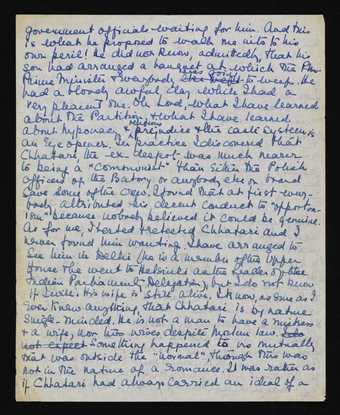 government officials waiting for him. And this
is what he proposed to walk me into to his
own peril! He did not know, admittedly, that his
son had arranged a banquet at which the
Prime Minister & everybody to weep. He
had a bloody awful day while I had a
very pleasant one. Oh Lord, what I have learned
about the Partition & what I have learned
about hypocracy & religious prejudice & the caste system is
an eye opener. In practice I discovered that
Chhatari, the ex despot was much nearer
to being a "communist" than the Polish
officers of the Batory or anybody else on board
save some of the crew. I found that at first every-
body attributed his decent conduct to "opportun-
ism" because nobody believed it could be genuine.
As for me, I tested & retested Chhatari and I
never found him wanting. I have arranged to
see him in Delhi (he is a member of the Upper
House & he went to Helsinki as the leader of the
Indian Parliamentary Delegation), but I do not know
if I will: his wife is still alive. I know, as sure as I
ever knew anything, that Chhatari is by nature
single-minded, he is not a man to have a mistress
& a wife, nor two wives despite Moslem law.
not expect Something happened to us mutually
that was outside the "normal", though this was
not in the nature of a romance. It was rather as
if Chhatari had always carried an ideal of a